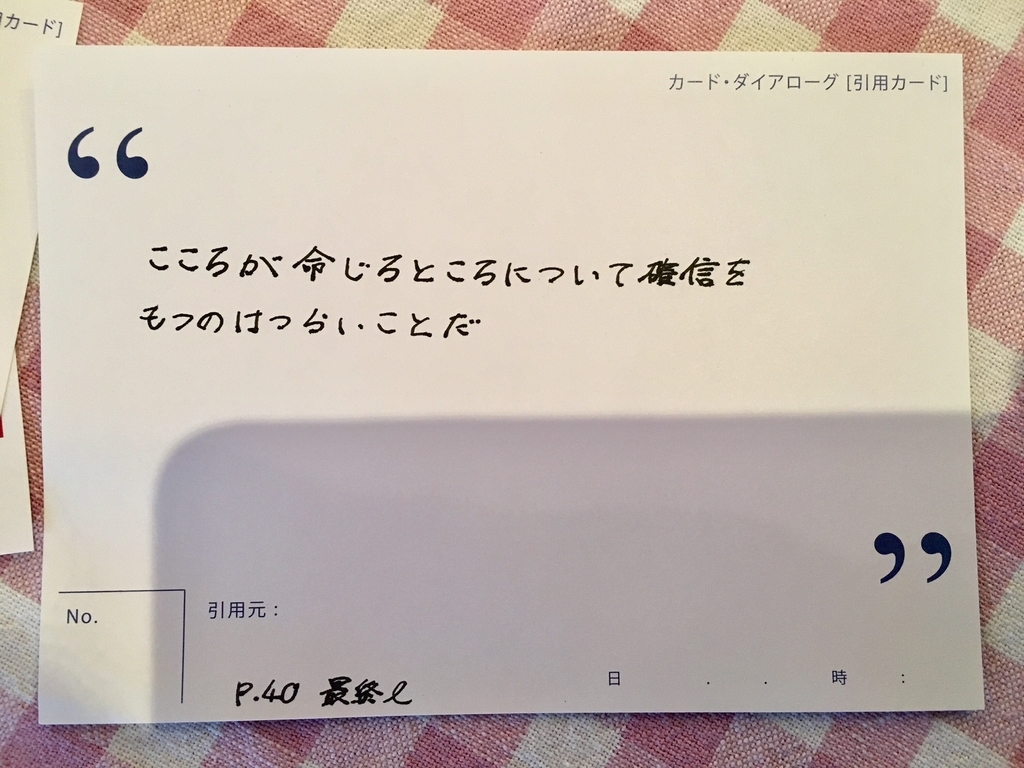 用カード]
カード・ダイアローグ [引用カード]
“
こころが命じるところについて確信を
もつのはつらいことだ
”
No.
引用元：
P.40 最終l
日 . . 時 :